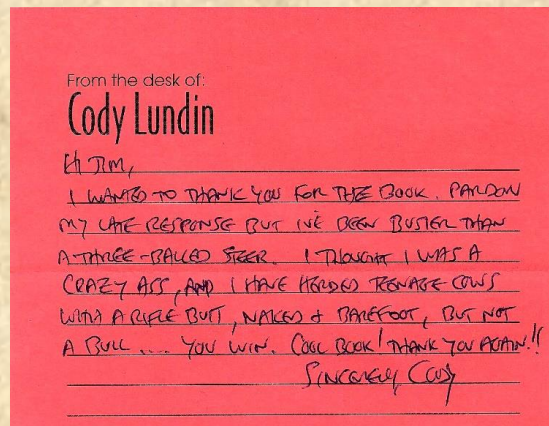 From the desk of:
Cody Lundin
Hi JIM,
I WANTED TO THANK YOU FOR THE BOOK. PARDON
MY LATE RESPONSE BUT I'VE BEEN BUSIER THAN
A THREE-BALLED STEER. I THOUGHT I WAS A
CRAZY ASS, AND I HAVE HERDED TEENAGE COWS
WITH A RIFLE BUTT, NAKED & BAREFOOT, BUT NOT
A BULL.... YOU WIN. COOL BOOK! THANK YOU AGAIN!!
SINCERELY, CODY